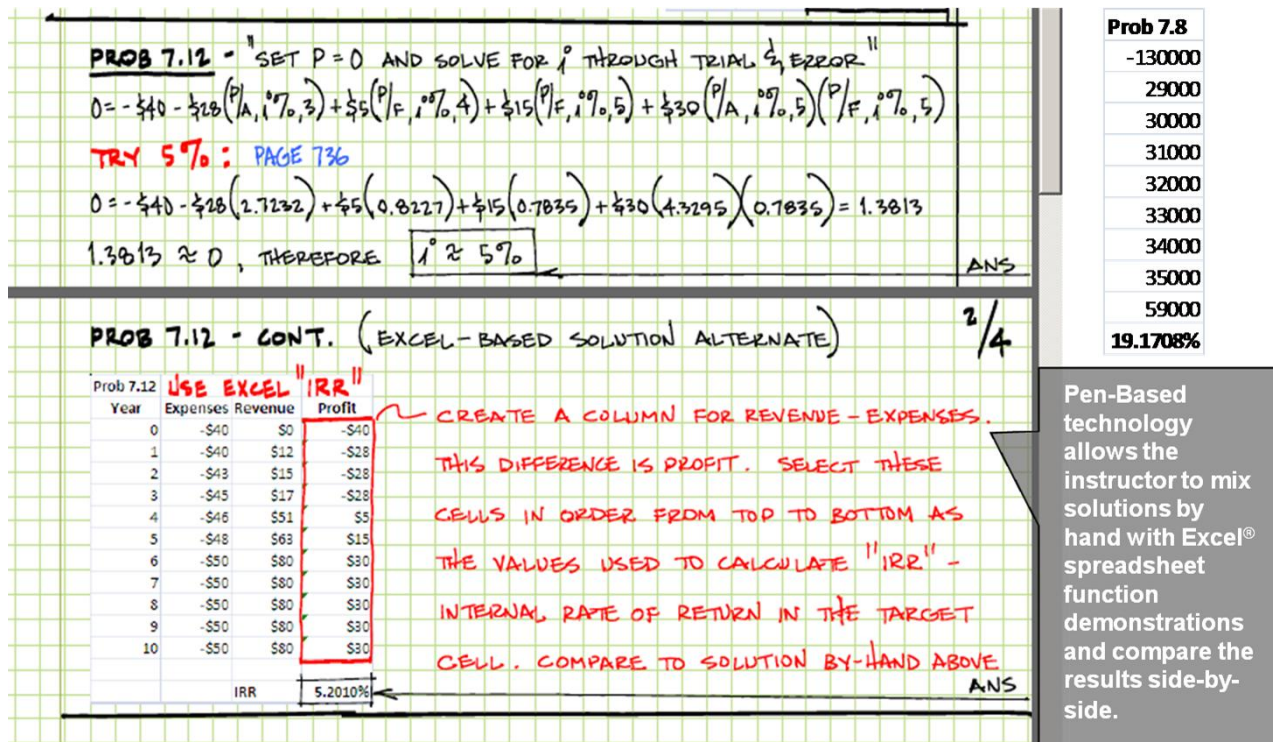 PROB 7.12 - "SET P = 0 AND SOLVE FOR i THROUGH TRIAL & ERROR"
0 = -$40 - $28(P/A, i%, 3) + $5(P/F, i%, 4) + $15(P/F, i%, 5) + $30(P/A, i%, 5)(P/F, i%, 5)
TRY 5%: PAGE 736
0 = -$40 - $28(2.7232) + $5(0.8227) + $15(0.7835) + $30(4.3295)(0.7835) = 1.3813
1.3813 ≈ 0, THEREFORE i ≈ 5%
ANS
PROB 7.12 - CONT. (EXCEL-BASED SOLUTION ALTERNATE)
2/4
Prob 7.12 USE EXCEL "IRR"
Year Expenses Revenue Profit
0 -$40 $0 -$40
1 -$40 $12 -$28
2 -$43 $15 -$28
3 -$45 $17 -$28
4 -$46 $51 $5
5 -$48 $63 $15
6 -$50 $80 $30
7 -$50 $80 $30
8 -$50 $80 $30
9 -$50 $80 $30
10 -$50 $80 $30
IRR 5.2010%
CREATE A COLUMN FOR REVENUE - EXPENSES.
THIS DIFFERENCE IS PROFIT. SELECT THESE
CELLS IN ORDER FROM TOP TO BOTTOM AS
THE VALUES USED TO CALCULATE "IRR" -
INTERNAL RATE OF RETURN IN THE TARGET
CELL. COMPARE TO SOLUTION BY-HAND ABOVE
ANS
Prob 7.8
-130000
29000
30000
31000
32000
33000
34000
35000
59000
19.1708%
Pen-Based
technology
allows the
instructor to mix
solutions by
hand with Excel®
spreadsheet
function
demonstrations
and compare the
results side-by-
side.